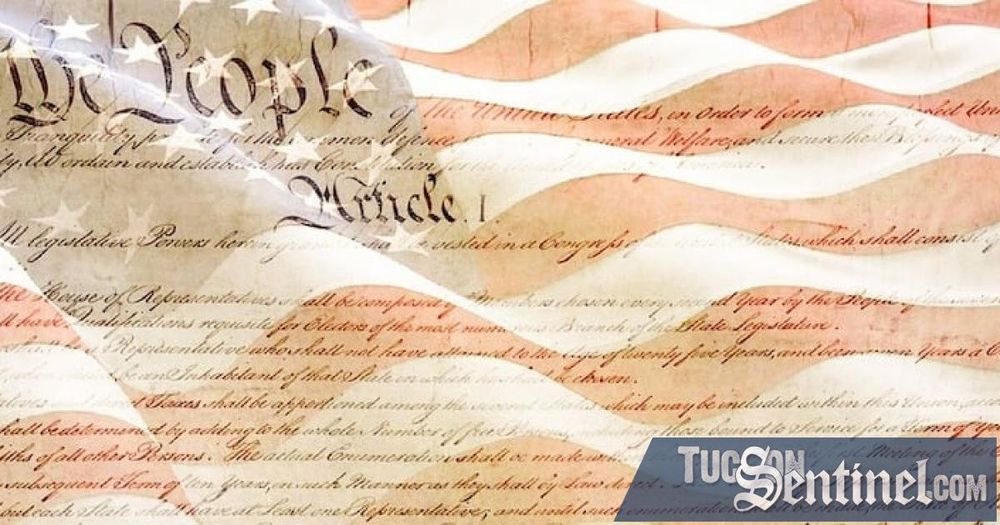 the People
of the United States, in Order to form
Tranquility, common Defence, General Welfare, and secure the Blessings of
ty, do ordain and establish this Constitution for the
Article. I.
All legislative Powers herein granted shall be vested in a Congress of the States, which shall consist of
The House of Representatives shall be composed of Members chosen every second Year by the People of the
ll have Qualifications requisite for Electors of the most numerous Branch of the State Legislature.
Representative who shall not have attained to the Age of twenty five Years, and been seven Years a C
an Inhabitant of that State in which he shall be chosen.
Taxes shall be apportioned among the several States which may be included within this Union,
hall be determined by adding to the whole Number of free Persons, including those bound to Service for a Term of Years
fths of all other Persons. The actual Enumeration shall be made
subsequent Term of ten Years, in such Manner as they shall by Law direct.
each State shall have at Least one Representative; and until such enumeration
TUCSON
SENTINEL.COM